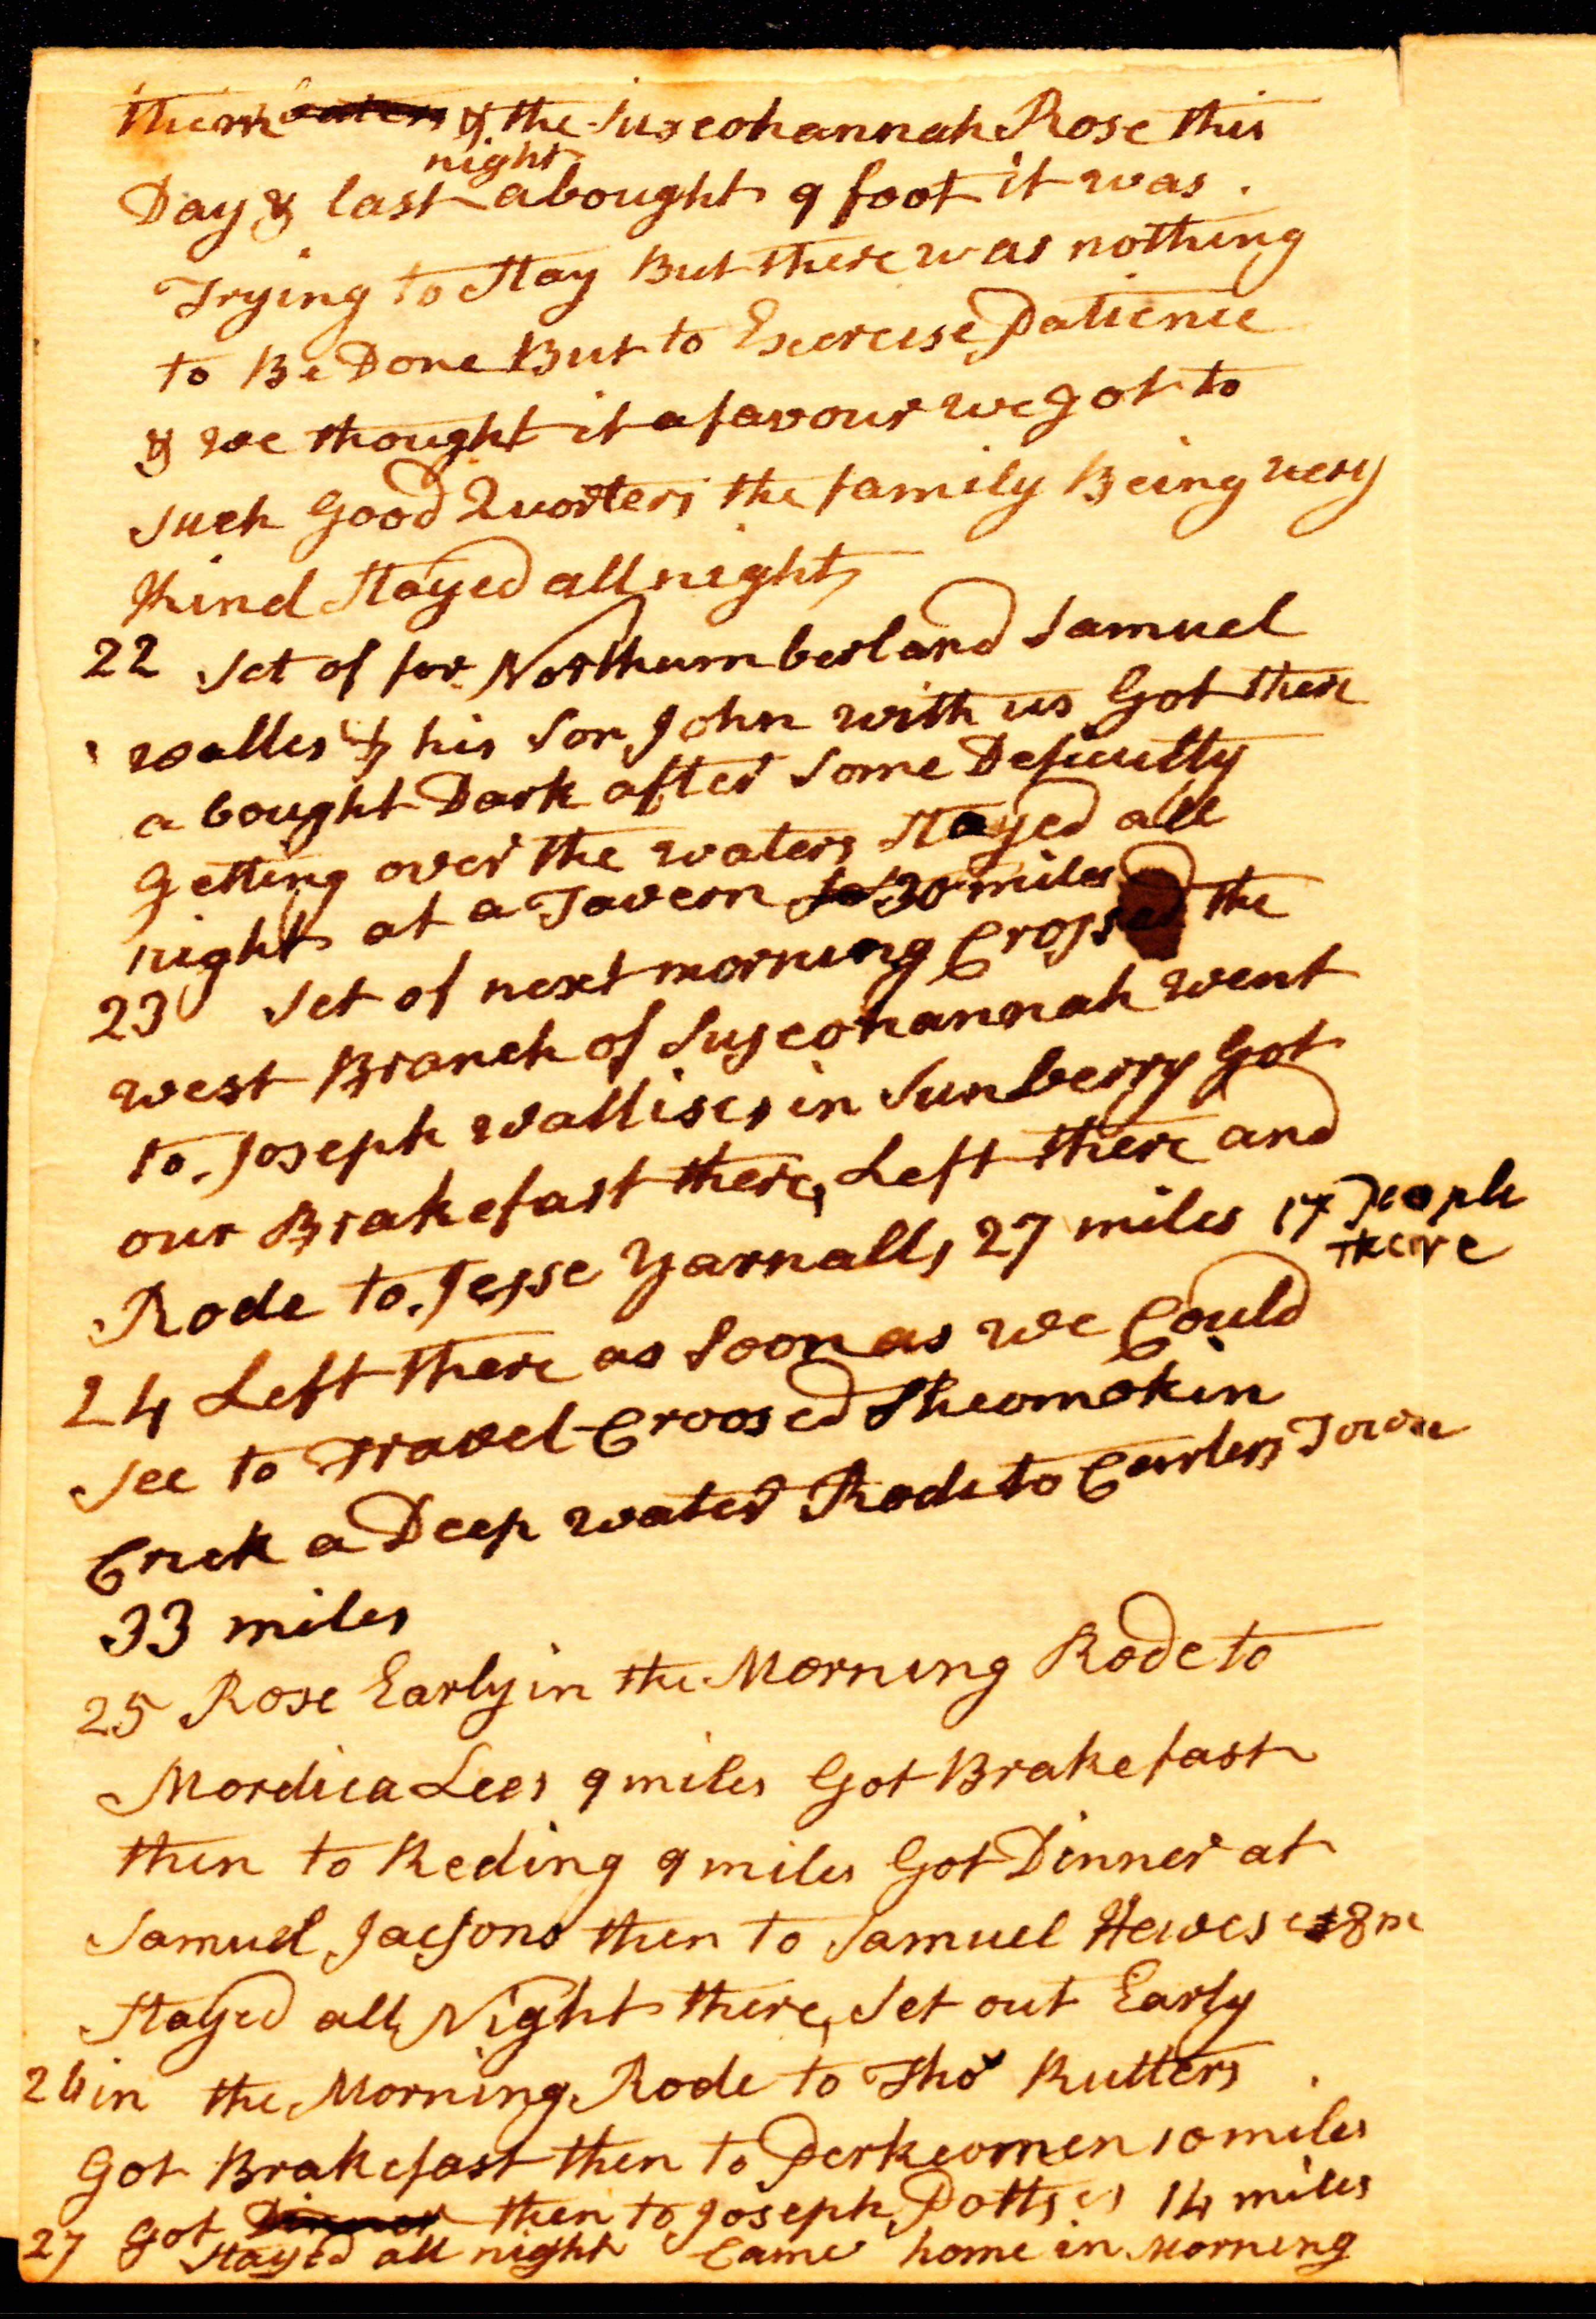 them & the Suscohannah Rose this
night
Day & last abought 9 foot it was
Trying to Stay But there was nothing
to Be Done But to Exercise Patience
& we thought it a favour we got to
such Good Quorters the family Being very
Kind Stayed all night
22 Set of for Northumberland Samuel
walles & his Son John with us Got there
a bought Dark after Some Deficulty
Getting over the waters Stayed all
night at a Tavern 30 miles
23 Set of next morning Crossed the
west Branch of Suscohannah went
to Joseph Wallises in Sunberry Got
our Brakefast there, Left there and
Rode to Jesse Yarnalls 27 miles 17 People
there
24 Left there as Soon as we Could
See to Travel Croosed Sheomokin
Crick a Deep water Rode to Town
33 miles
25 Rose Early in the Morning Rode to
Mordica Lees 9 miles Got Brakefast
then to Reding 9 miles Got Dinner at
Samuel Jacsons then to Samuel 18 m
Stayed all Night there, Set out Early
26 in the Morning Rode to Tho Rutters
Got Brakefast then to Perkeomen 10 miles
Got Dinner then to Joseph Pottses 14 miles
27 Stayed all night Came home in Morning